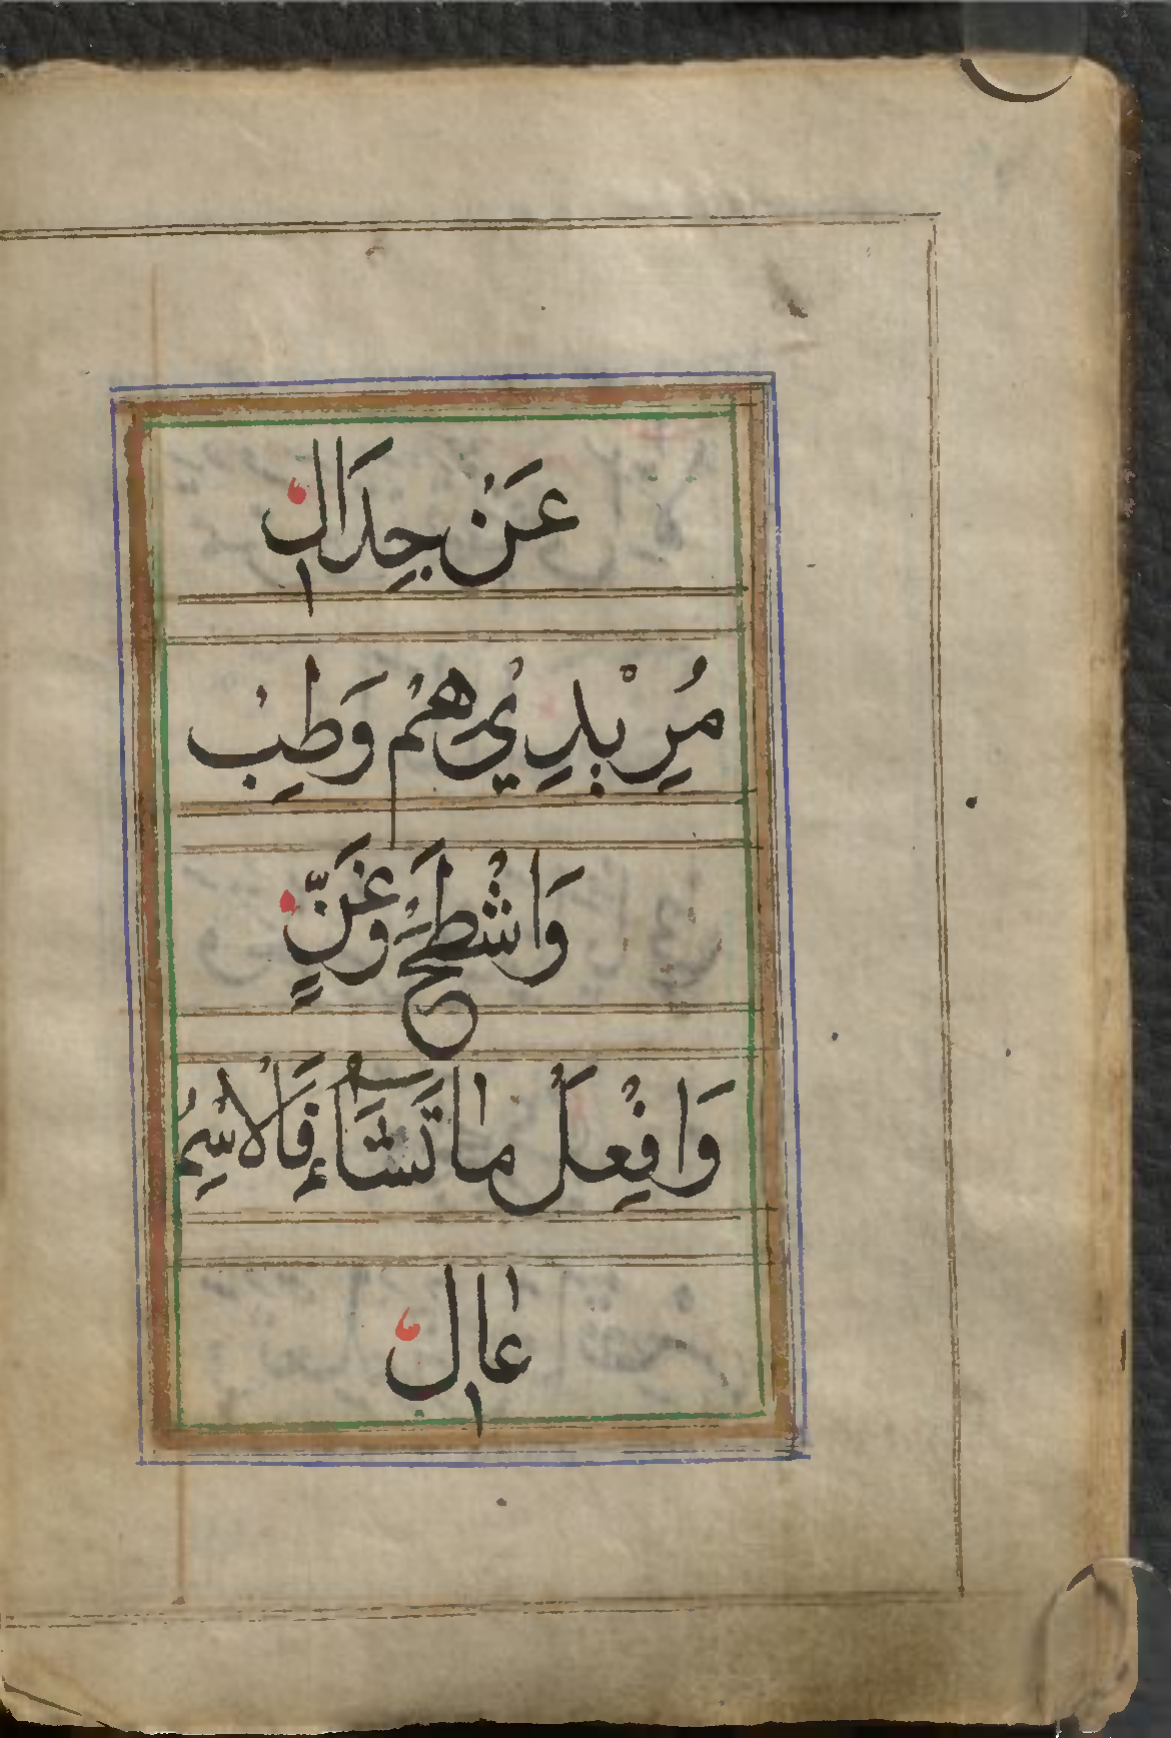 عَنْ جِدَالِ
مُرِيْدِيْ هِمْ وَطِبْ
وَاشْطَحْ وَغَنِّ
وَافْعَلْ مَا تَشَاءُ فَالْاسْمُ
عَالِ